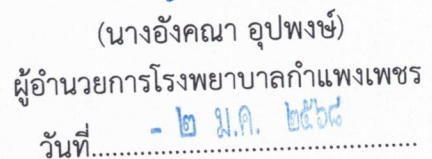 (นางอังคณา อุปพงษ์)
ผู้อำนวยการโรงพยาบาลกำแพงเพชร
วันที่.....- ๒ ม.ค. ๒๕๖๘.....